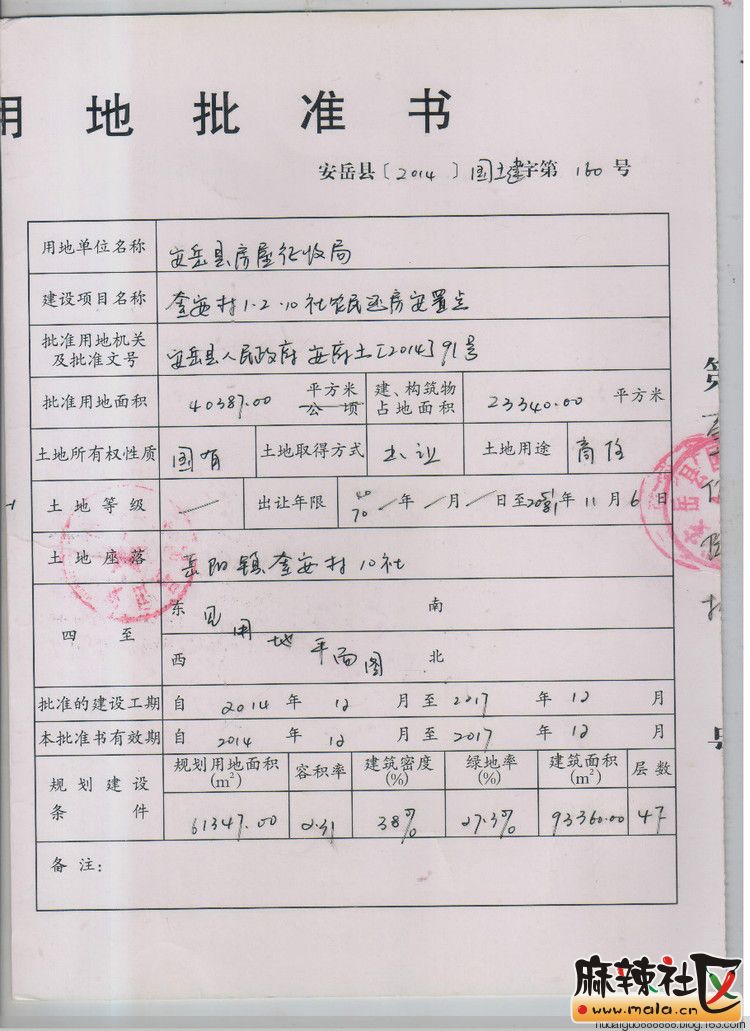 用 地 批 准 书
安岳县〔2014〕国土建字第 160 号
用地单位名称 安岳县房屋征收局
建设项目名称 奎安村1·2·10社农民还房安置点
批准用地机关
及批准文号 安岳县人民政府 安府土[2014]91号
批准用地面积 40387.00 平方米 公顷 建、构筑物
占地面积 23340.00 平方米
土地所有权性质 国有 土地取得方式 出让 土地用途 商住
土地等级 出让年限 40
70 年 月 日至 年 11 月 6 日
土地座落 岳阳镇奎安村10社
四 至 东 见用地平面图 南
西 北
批准的建设工期 自 2014 年 12 月 至 2017 年 12 月
本批准书有效期 自 2014 年 12 月 至 2017 年 12 月
规划建设
条 件 规划用地面积
(m²) 容积率 建筑密度
(%) 绿地率
(%) 建筑面积
(m²) 层数
61347.00 2.31 38% 27.3% 93360.00 4F
备 注：
麻辣社区
www.mala.cn
hudaiguo888888.blog.163.com